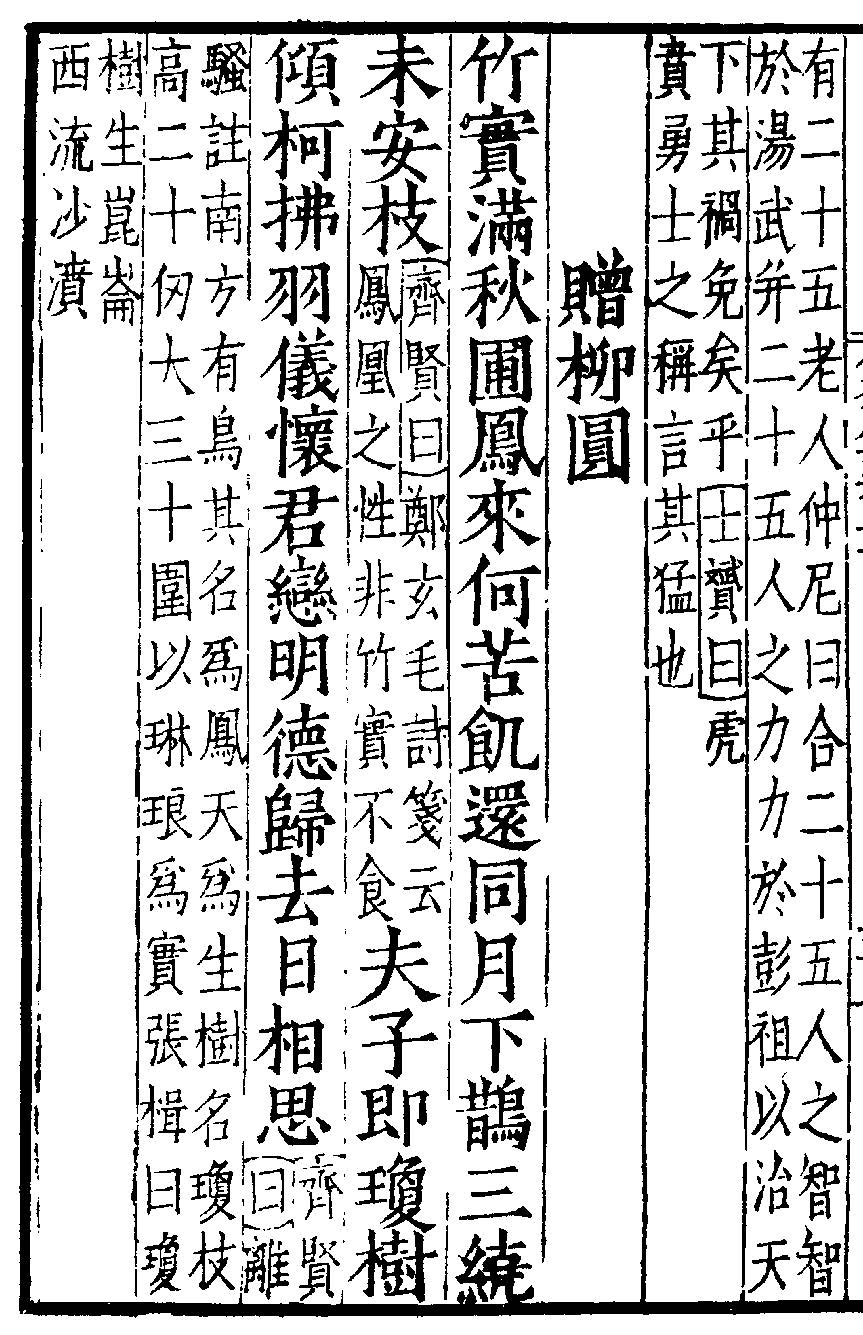 有二十五老人仲尼曰合二十五人之智智
於湯武并二十五人之力力於彭祖以治天
下其禍免矣乎士贇曰虎
賁勇士之稱言其猛也
贈柳圓
竹實滿秋圃鳳來何苦飢還同月下鵲三繞
未安枝齊賢曰鄭玄毛詩箋云鳳凰之性非竹實不食夫子即瓊樹
傾柯拂羽儀懷君戀明德歸去日相思齊賢曰離
騷註南方有鳥其名爲鳳天爲生樹名瓊枝
高二十仞大三十圍以琳琅爲實張楫曰瓊
樹生崑崙
西流沙濱